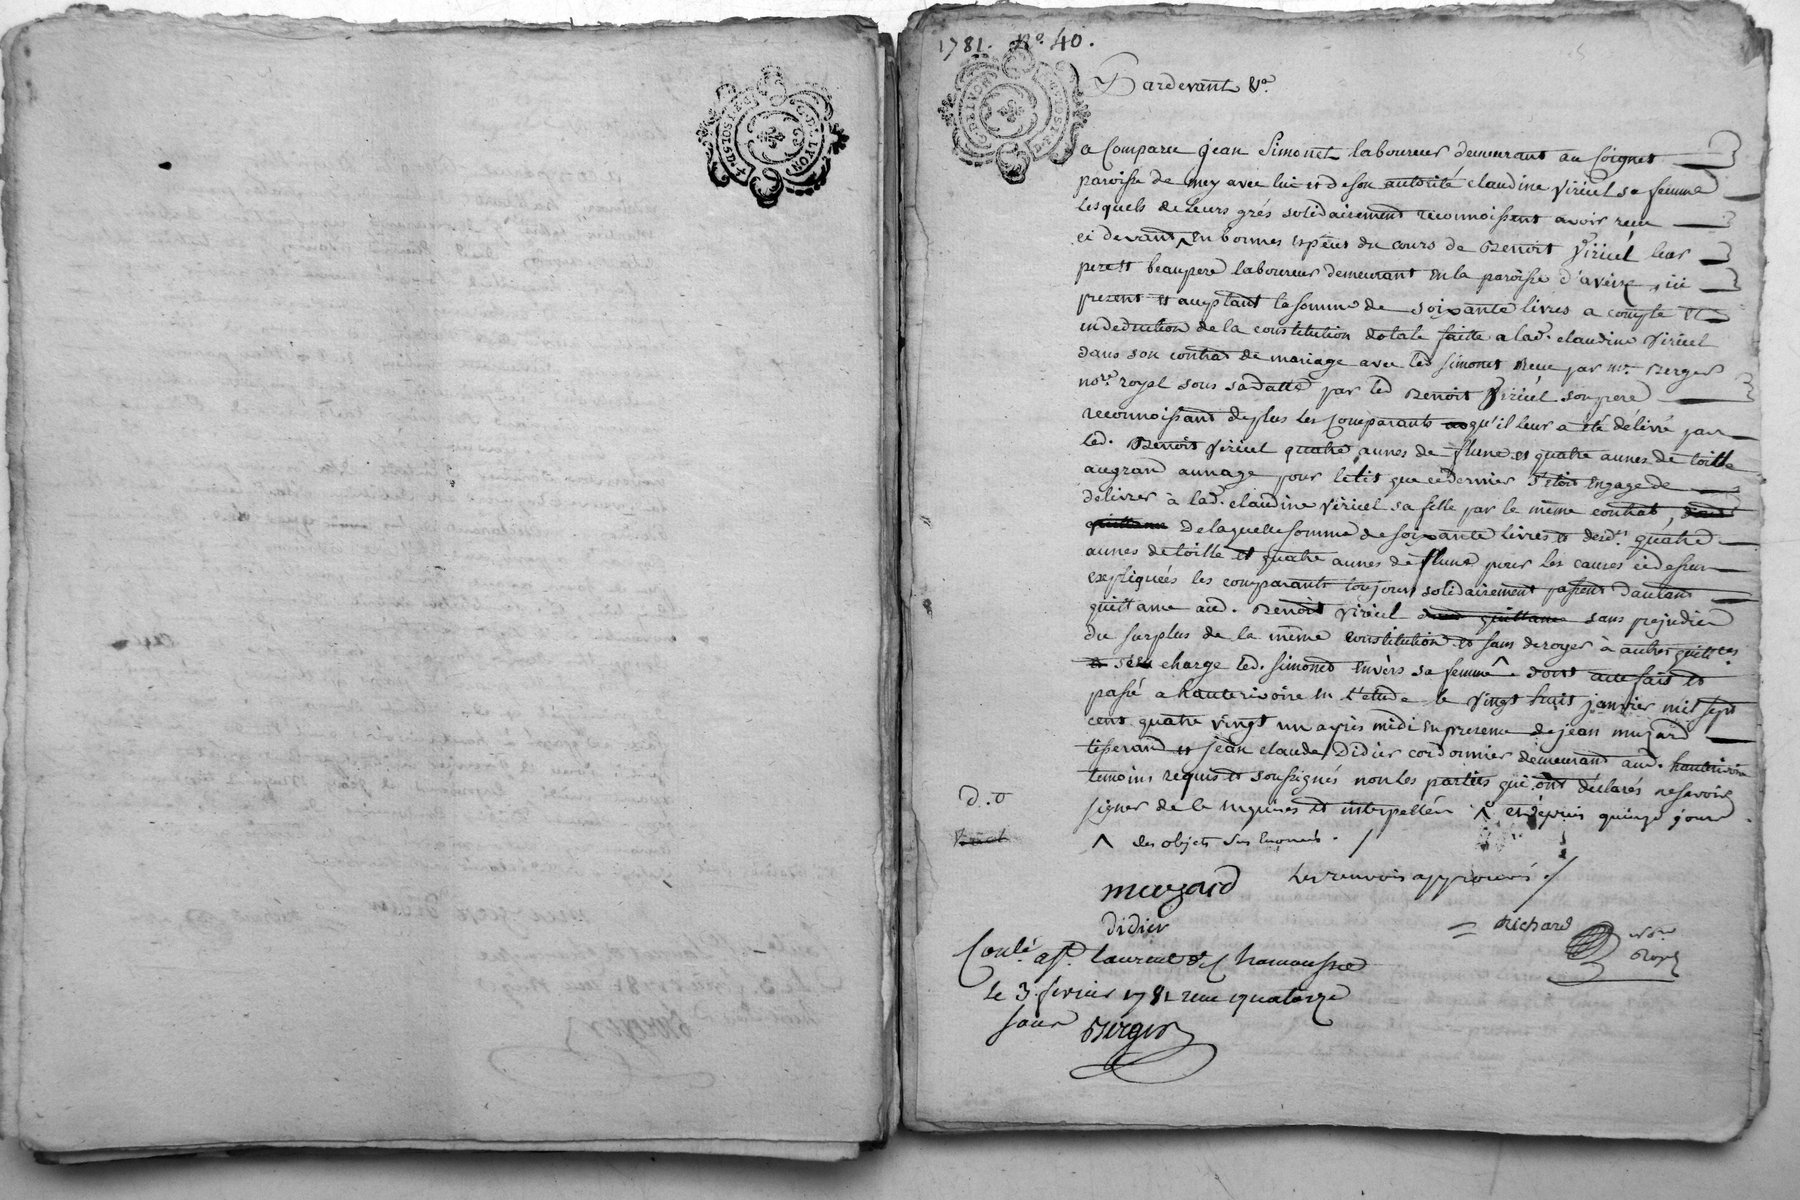 1781. No. 40.
GN DE LYON
Pardevant &a
a Comparu jean Simonet laboureur demeurant au Coignet
paroisse de mey avec lui et de son autorité claudine Viriæl sa femme
lesquels de Leurs grés solidairement reconnoissent avoir recu
ci devant ^ En bonnes Espéces du cours de Benoit Viricel leur
pere et beaupere laboureur demeurant En la paroisse d'aveize, ici
present et acceptant la somme de soixante livres a compte et
indeduction de la constitution dotale faitte a lad. claudine Viricel
dans son contrat de mariage avec led Simonet Recu par me. Berger
nore. royal sous sa datte par led Benoit Viricel son pere
reconnoissant de plus les Comparants qu'il leur a été délivré par
led. Benoit Viricel quatre aunes de flune et quatre aunes de toille
au gran aunage pour le lit que ce dernier s'etoit Engagé de
délivrer à lad. claudine Viricel sa fille par le même contrat,
quittance De laquelle somme de soixante livres et desd. quatre
aunes de toille et quatre aunes de flune pour les causes cidessus
expliquées les comparants toujours solidairement passent d'autant
quittance aud. Benoit Viricel dont quittance sans prejudice
du surplus de la même Constitution et sans deroger à autres
charge led. Simonet Envèrs sa femme ^ dont acte fait et
passé a hauterivoire En l'etude le Vingt huit janvier mil sept
cent quatre Vingt un après midi En presence de jean mujard
tisserand et jean claude Didier cordonnier demeurant aud. hauterivoire
temoins requis et soussignés non les parties qui ont déclarés ne savoir
signer de ce Enquises et interpellées ^ et depuis quinze jours
^ des objets sus Enoncés . /
les renvois approuvés ./
muzard
didier
= Richard nore Royal
Conlé a st. laurent de Chamousset
le 3 fevrier 1781 recu quatorze
sous Berger